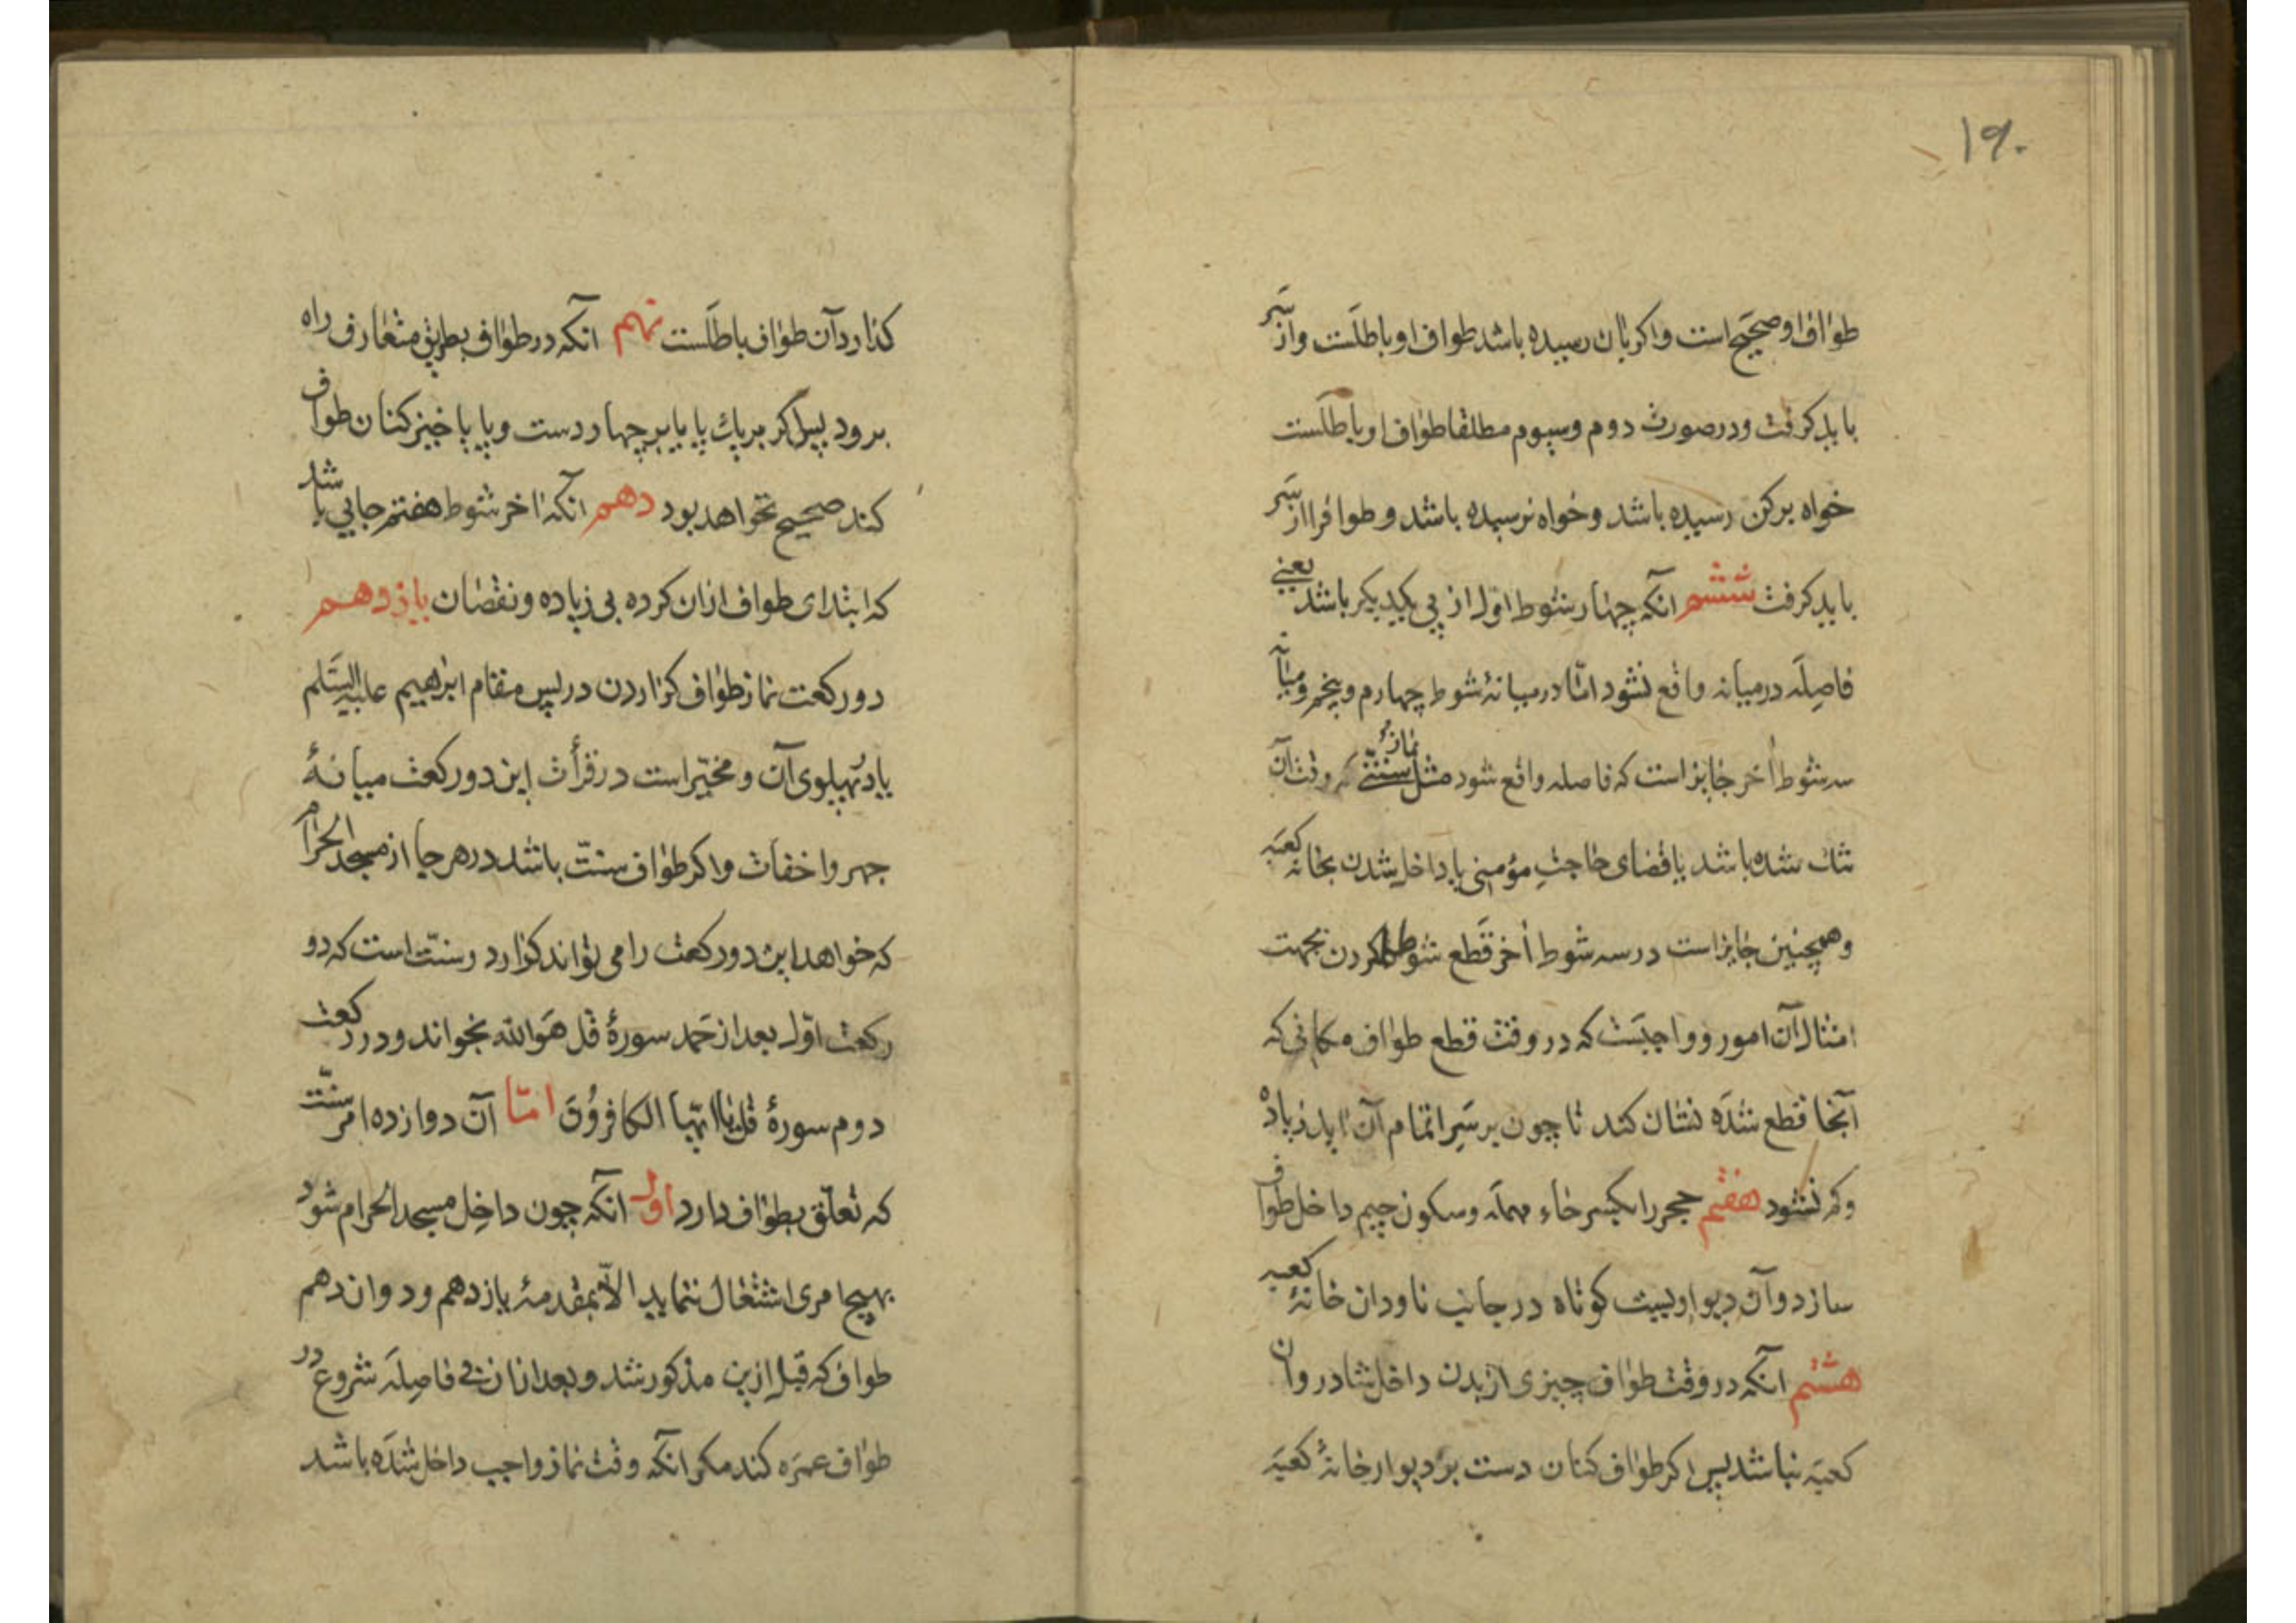 ۱۹۰
طواف او صحیح است و اگر بآن رسیده باشد طواف او باطلست و از سر
باید کرفت و در صورت دوم و سیوم مطلقا طواف او باطلست
خواه برکن رسیده باشد و خواه نرسیده باشد و طواف را از سر
باید کرفت ششم انکه چهار شوط اول از پی یکدیکر باشد یعنی
فاصله در میانه واقع نشود امّا در میانهٔ شوط چهارم و پنجم و میانه
سه شوط اخر جایز است که فاصله واقع شود مثل نماز سنتی که وقت آن
تنك شده باشد یا قضای حاجت مؤمنی یا داخل شدن بخانه کعبه
و همچنین جایز است در سه شوط اخر قطع شوطها کردن بجهت
امثال آن امور و واجبست که در وقت قطع طواف مکانی که
آنجا قطع شده نشان کند تا چون بر سر اتمام آن اید زیاده
و کم نشود هفتم حجر را بکسر حاء مهمله و سکون جیم داخل طواف
سازد و آن دیواریست کوتاه در جانب ناودان خانهٔ کعبه
هشتم انکه در وقت طواف چیزی از بدن داخل شادروان
کعبه نباشد پس اکر طواف کنان دست بر دیوار خانهٔ کعبه
کذارد آن طواف باطلست نهم انکه در طواف بطریق متعارف راه
برود پس اکر بر یك پا یا بر چهار دست و پا یا خیز کنان طواف
کند صحیح نخواهد بود دهم انکه اخر شوط هفتم جایی باشد
که ابتدای طواف ازان کرده بی زیاده و نقصان یازدهم
دو رکعت نماز طواف کزاردن در پس مقام ابرهیم علیه السّلم
یا در پهلوی آن و مخیّر است در قرأت این دو رکعت میانهٔ
جهر و اخفات و اکر طواف سنّت باشد در هر جا از مسجد الحرام
که خواهد این دو رکعت را می تواند کزارد و سنّت است که در
رکعت اوّل بعد از حمد سورهٔ قل هو الله بخواند و در رکعت
دوم سورهٔ قل یا ایّها الکافرون امّا آن دوازده امر سنّت
که تعلّق بطواف دارد اول انکه چون داخل مسجد الحرام شود
بهیچ امری اشتغال ننماید الّا بمقدمهٔ یازدهم و دوازدهم
طواف که قبل ازین مذکور شد و بعد ازان بی فاصله شروع در
طواف عمره کند مکر انکه وقت نماز واجب داخل شده باشد